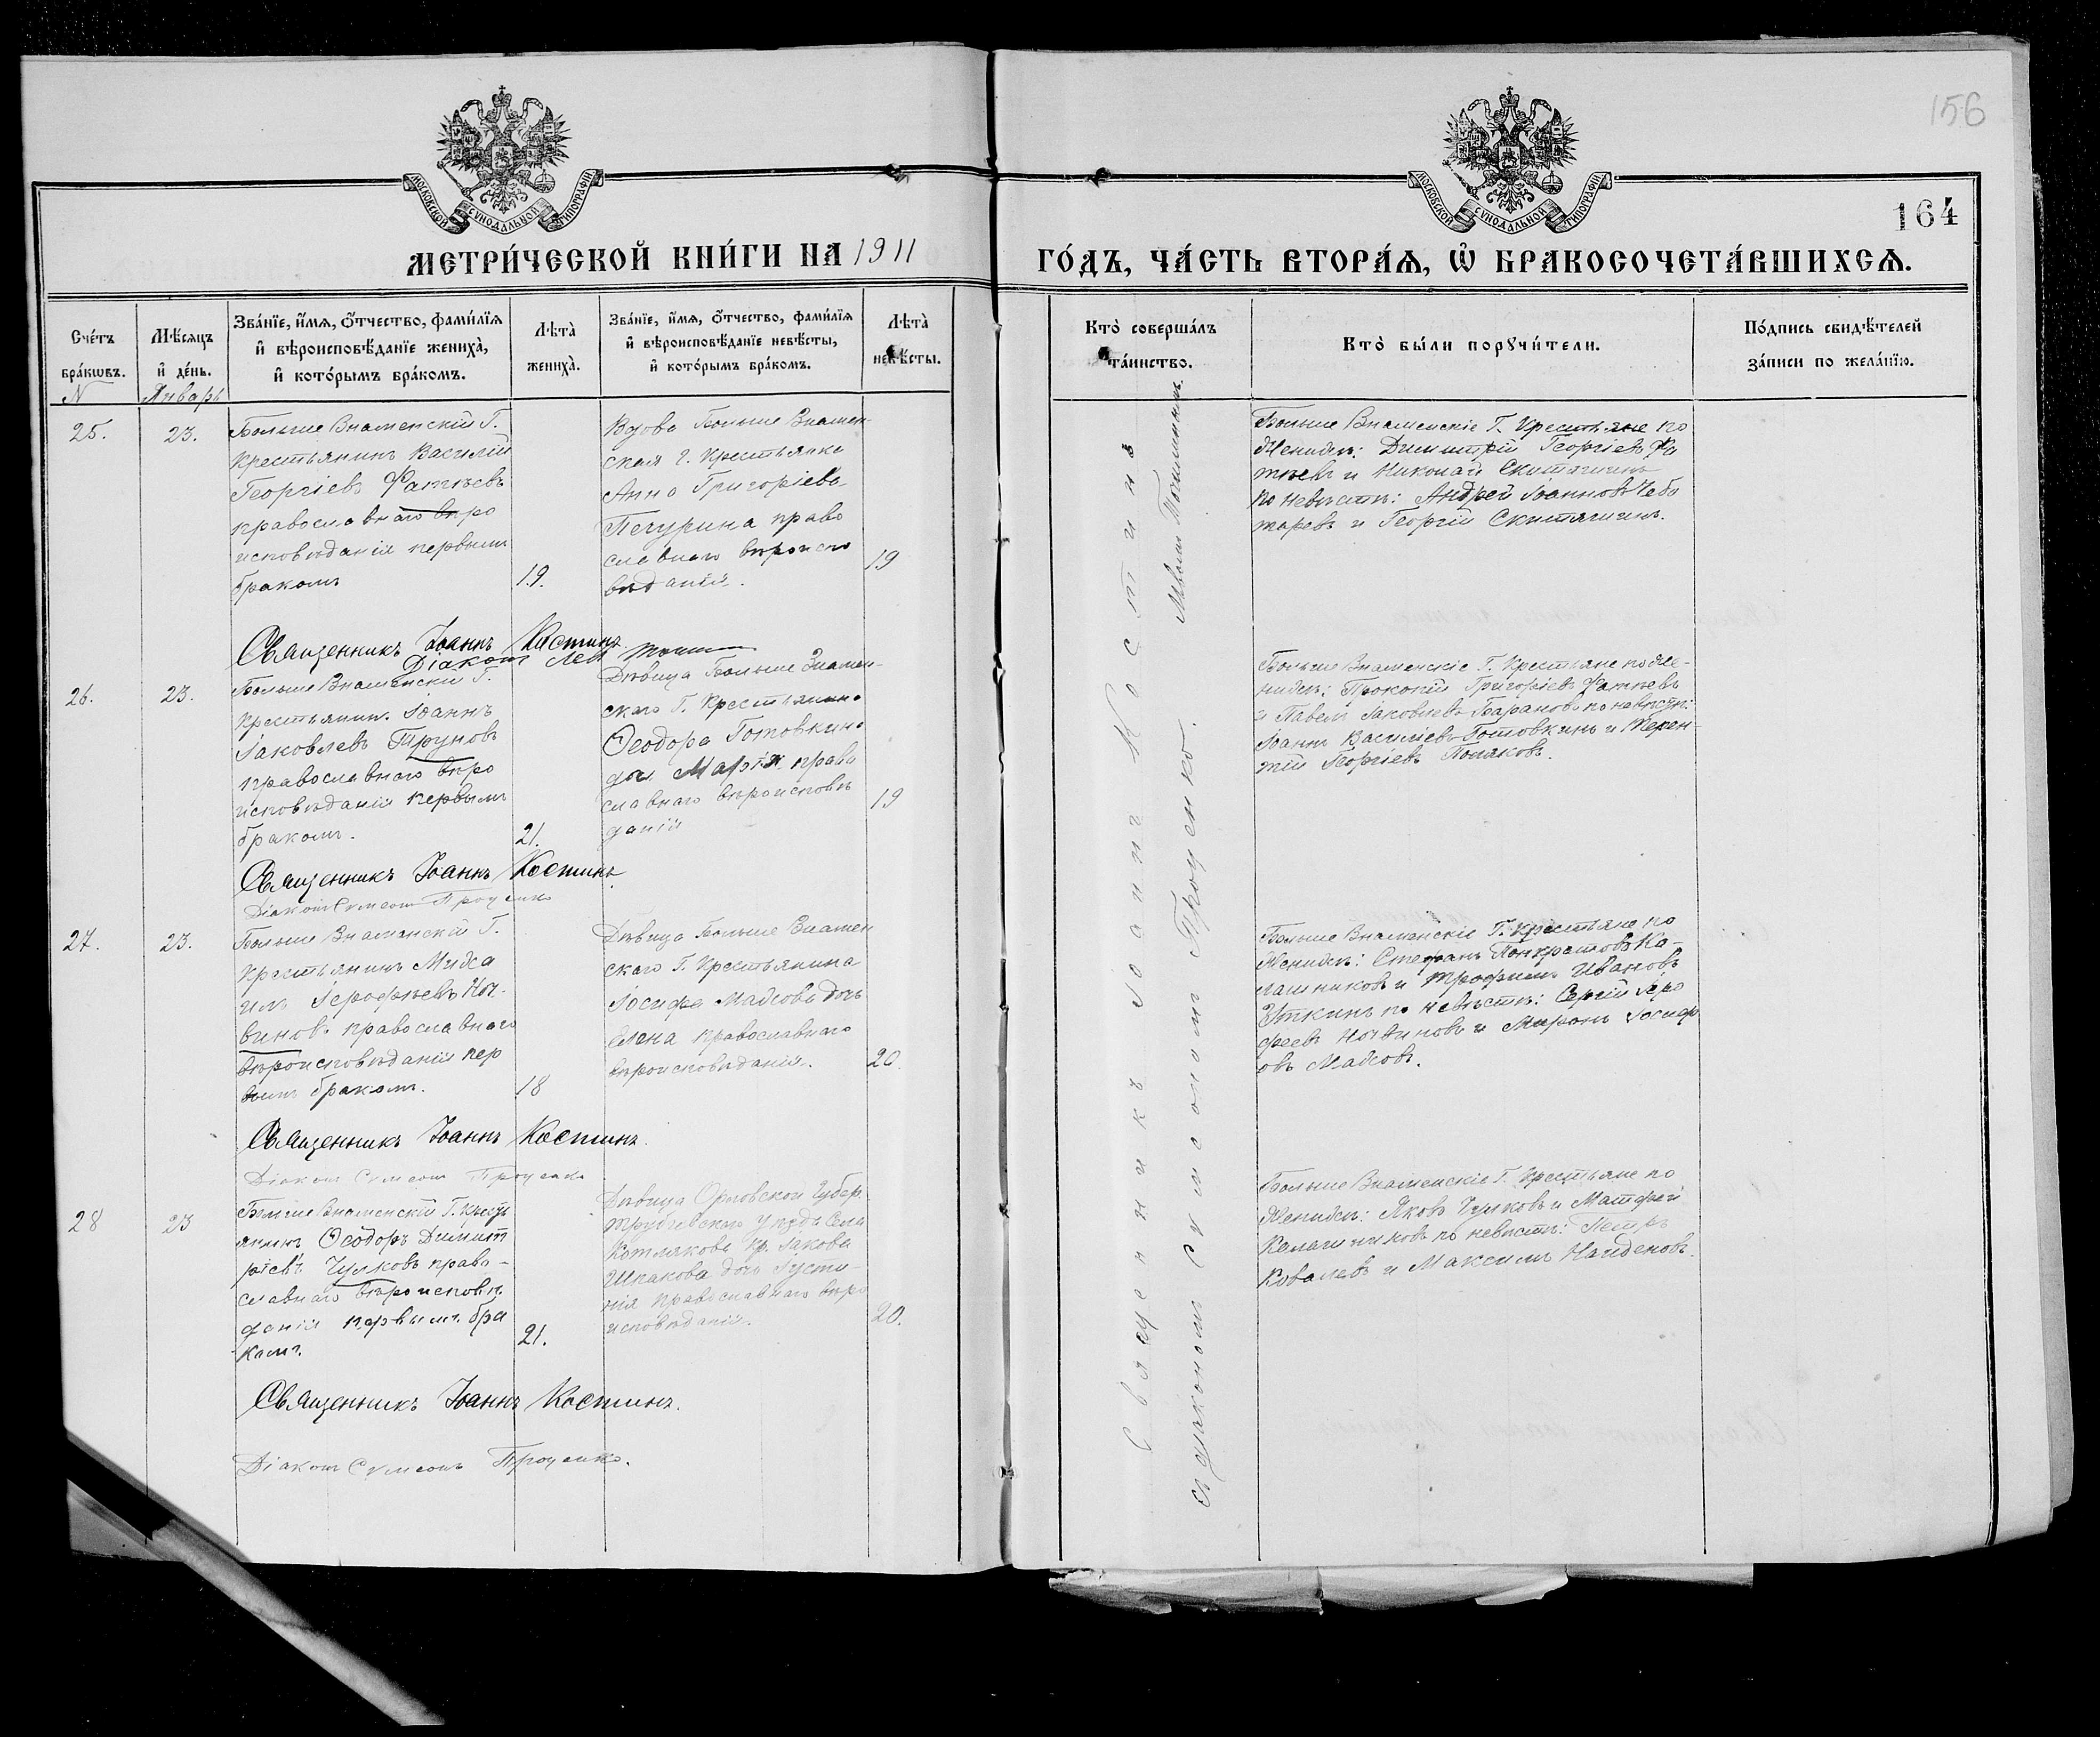 156
164
МОСКОВСКОЙ СѴНОДАЛЬНОЙ ТИПОГРАФІИ
МОСКОВСКОЙ СѴНОДАЛЬНОЙ ТИПОГРАФІИ
МЕТРИ́ЧЕСКОЙ КНИ́ГИ НА 1911
ГО́ДЪ, ЧА́СТЬ ВТОРА́Ѧ, Ѽ БРАКОСОЧЕТА́ВШИХСѦ.
Сче́тъ бра́кѡвъ.
Мѣ́сяцъ и҆ де́нь.
Зва́нїе, и҆́мѧ, ѻ҆́тчество, фами́лїѧ и҆ вѣроисповѣ́данїе жениха̀, и҆ кото́рымъ бра́комъ.
Лѣта̀ жениха̀.
Зва́нїе, и҆́мѧ, ѻ҆́тчество, фами́лїѧ и҆ вѣроисповѣ́данїе невѣ́сты, и҆ кото́рымъ бра́комъ.
Лѣта̀ невѣ́сты.
Кто̀ соверша́лъ та́инство.
Кто̀ бы́ли порꙋчи́тели.
По́дпись свидѣ́телей за́писи по жела́нїю.
N
Январь
25.
23.
Больше Знаменскій Г.
крестьянинъ Василій
Георгіевъ Фатѣевъ
православнаго вѣро
исповѣданія первымъ
бракомъ
19.
Вдова Больше Знамен-
ская Г. Крестьянка
Анна Григоріева
Печурина право
славнаго вѣроиспо
вѣданія.
19
Больше Знаменскіе Г. Крестьяне по
Женихѣ: Димитрій Георгіевъ Фа
тѣевъ и Николай Скитягинъ
по невѣстѣ: Андрей Іоанновъ Чебо
таревъ и Георгій Скитягинъ.
Священникъ Іоаннъ Костинъ
Діаконъ
26.
23.
Больше Знаменскій Г.
Крестьянин. Іоаннъ
Іаковлевъ Труновъ
православнаго вѣро
исповѣданія первымъ
бракомъ.
21.
Дѣвица Больше Знамен-
скаго Г. Крестьянина
Ѳеодора Готовкина
дочь Марія право
славнаго вѣроисповѣ
данія
19
Больше Знаменскіе Г. Крестьяне по Же-
нихѣ: Прокопій Григоріевъ Фатѣевъ
и Павелъ Іаковлевъ Барановъ по невѣстѣ:
Іоаннъ Василіевъ Готовкинъ и Терен-
тій Георгіевъ Поляковъ.
Священникъ Іоаннъ Костинъ
Діаконъ Сѵмеонъ Проценко
27.
23.
Больше Знаменскій Г.
Крестьянинъ Миха
илъ Іерофѣевъ Ноч-
виновъ православнаго
вѣроисповѣданія пер
вымъ бракомъ.
18
Дѣвица Больше Знамен
скаго Г. Крестьянина
Іосифа Махова дочь
Елена православнаго
вѣроисповѣданія.
20.
Больше Знаменскіе Г. Крестьяне по
Женихѣ: Стефанъ Панкратовъ Ка-
лашниковъ и Трофимъ Ивановъ
Уткинъ по невѣстѣ: Сергій Іеро
феевъ Ночвиновъ и Миронъ Іосиф
овъ Маховъ.
Священникъ Іоаннъ Костинъ.
Діаконъ Сѵмеонъ Проценко
28
23
Больше Знаменскій Г. Крест
янинъ Ѳеодоръ Димит
ріевъ Чулковъ право-
славнаго вѣроисповѣ
данія первымъ бра
комъ.
21.
Дѣвица Орловской Губер.
Трубчевскаго Уѣзда Села
Котлякова Кр. Іакова
Шпакова дочь Іусти-
нія православнаго вѣро
исповѣданія.
20.
Больше Знаменскіе Г. Крестьяне по
Женихѣ: Яковъ Чулковъ и Матфей
Калашниковъ по невѣстѣ: Петръ
Ковалевъ и Максимъ Найденовъ.
Священникъ Іоаннъ Костинъ.
Діаконъ Сѵмеонъ Проценко.
Священникъ Іоаннъ Костинъ
съ діакономъ Сѵмеономъ Проценко.